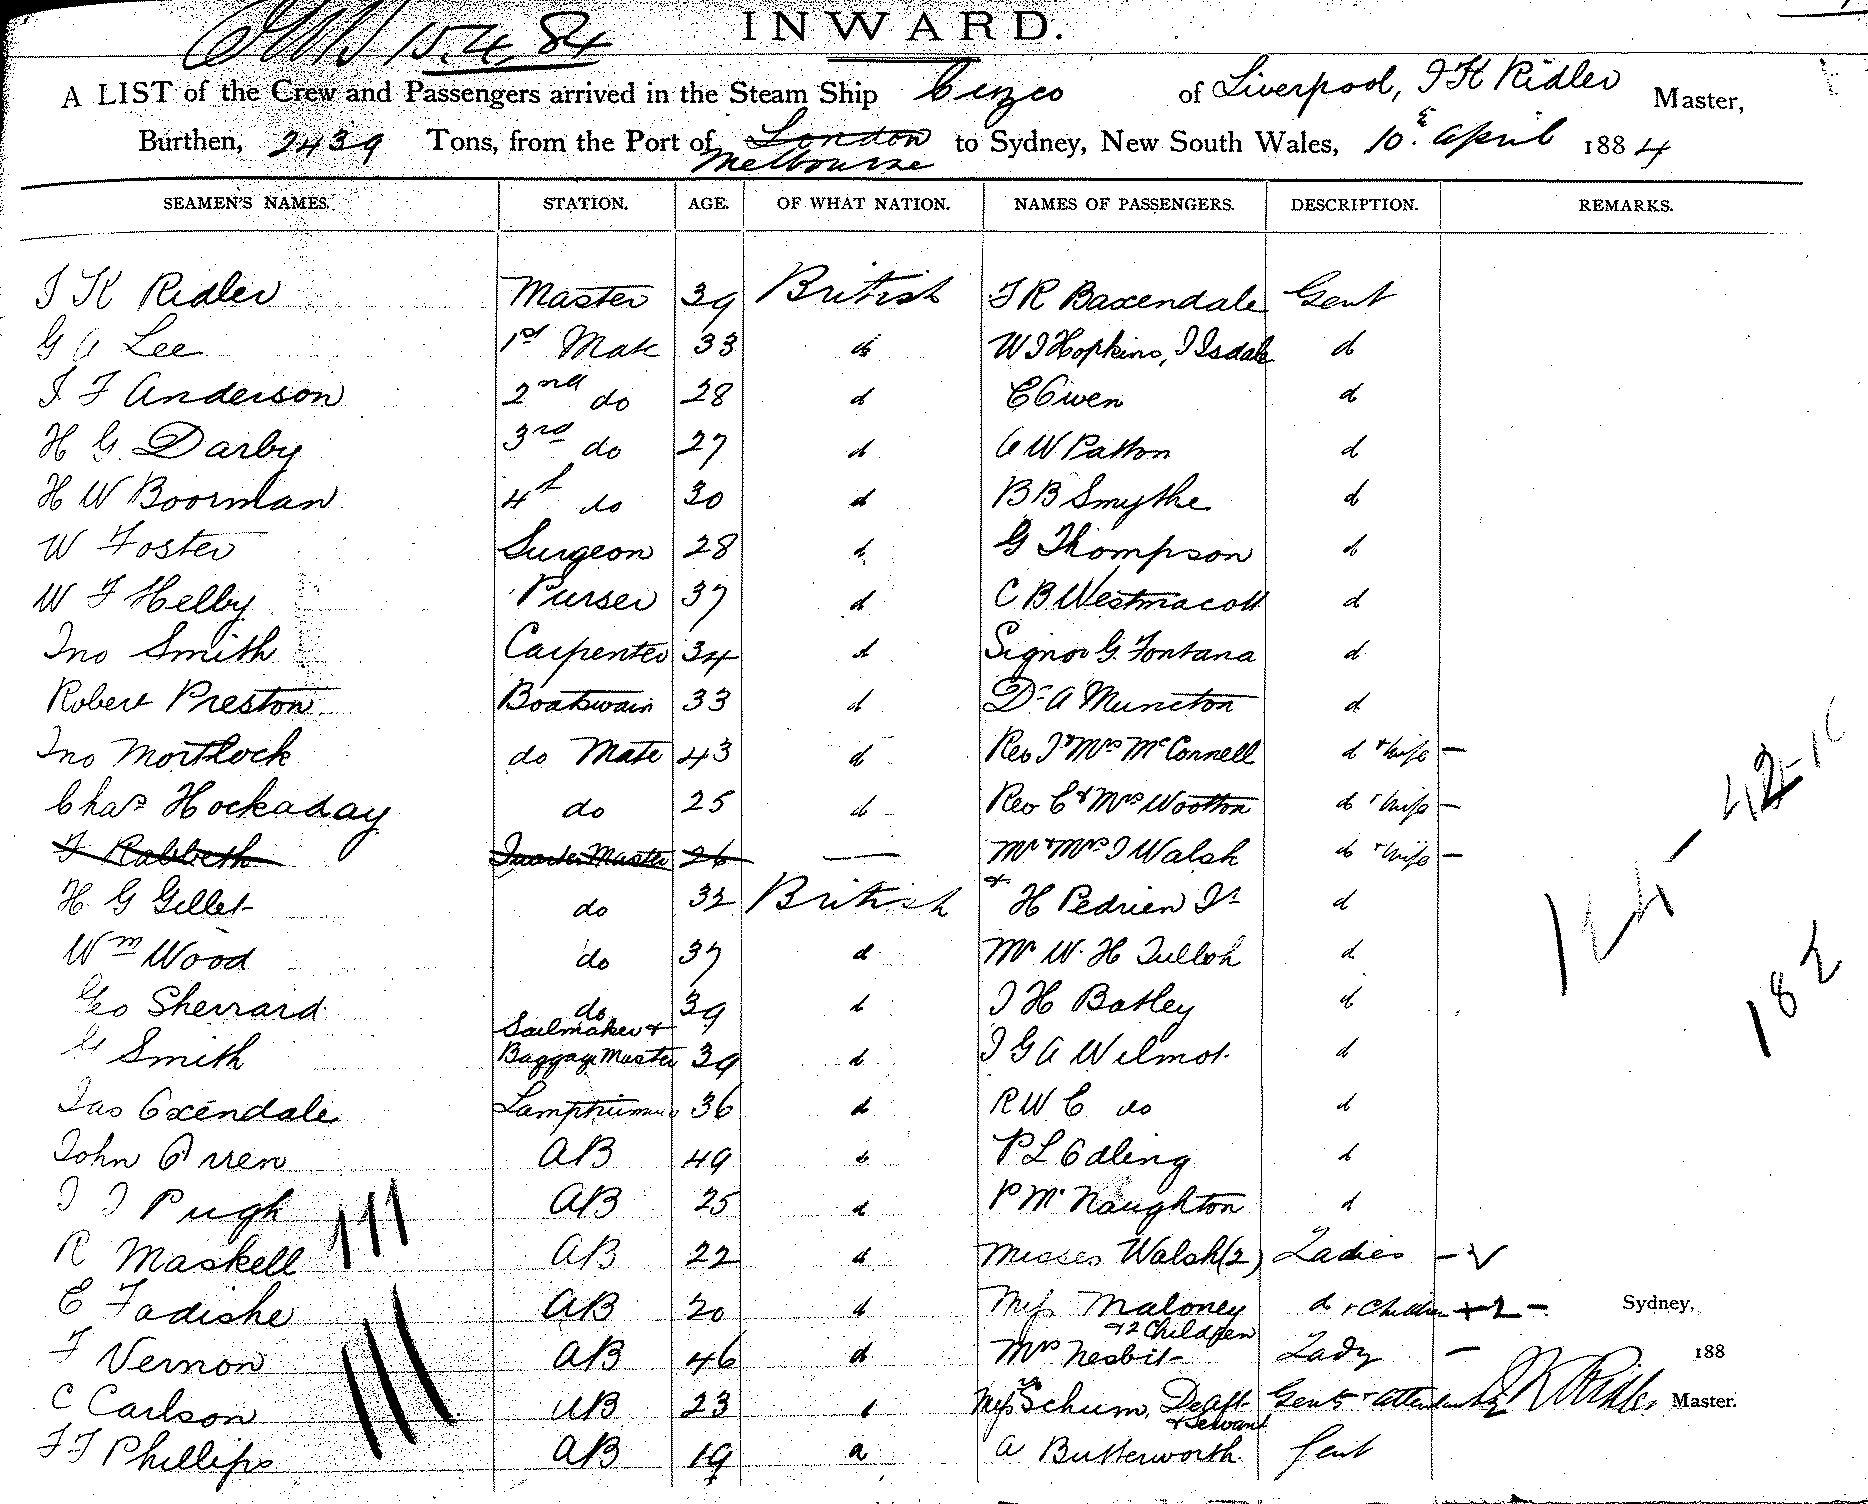 15.4.84
INWARD.
A LIST of the Crew and Passengers arrived in the Steam Ship Cuzco of Liverpool, J K Ridler Master,
Burthen, 2439 Tons, from the Port of London Melbourne to Sydney, New South Wales, 10th April 1884
SEAMEN'S NAMES. STATION. AGE. OF WHAT NATION. NAMES OF PASSENGERS. DESCRIPTION. REMARKS.
J K Ridler Master 39 British J R Baxendale Gent
G A Lee 1st Mate 33 do W J Hopkins, J Isdale d
J F Anderson 2nd do 28 d E Owen d
H G Darby 3rd do 27 d A W Patton d
H W Boorman 4th do 30 d B B Smythe d
W Foster Surgeon 28 d G Thompson d
W F Helby Purser 37 d C B Westmacott d
Jno Smith Carpenter 34 d Signor G. Fontana d
Robert Preston Boatswain 33 d Dr A Muncton d
Jno Mortlock do Mate 43 d Rev J & Mrs McConnell d & Wife –
Chas Hockaday do 25 d Rev C & Mrs Wootton d & Wife –
F Rabbeth Quarter Master 26 — Mr & Mrs J Walsh d & Wife –
H G Gillet do 32 British & H Pedrien Jr d
Wm Wood do 37 d Mr W. H Tulloh d
Geo Sherrard do 39 d J H Batley d
G Smith Sailmaker & Baggage Master 39 d J G A Wilmot d
Jas Oxendale Lamptrimmer 36 d R W E do d
John Orren AB 49 d P L Edling d
J J Pugh AB 25 d P McNaughton d
R Maskell AB 22 d Misses Walsh (2) Ladies –
E Fadishe AB 20 d Miss Maloney & 2 Children d & Children + 2 – Sydney,
F Vernon AB 46 d Mrs Nesbit Lady – 188
C Carlson AB 23 d Messrs Schum, Deaft & Servant Gents & attendant J K Ridler Master.
F F Phillips AB 19 d A Butterworth Gent
182